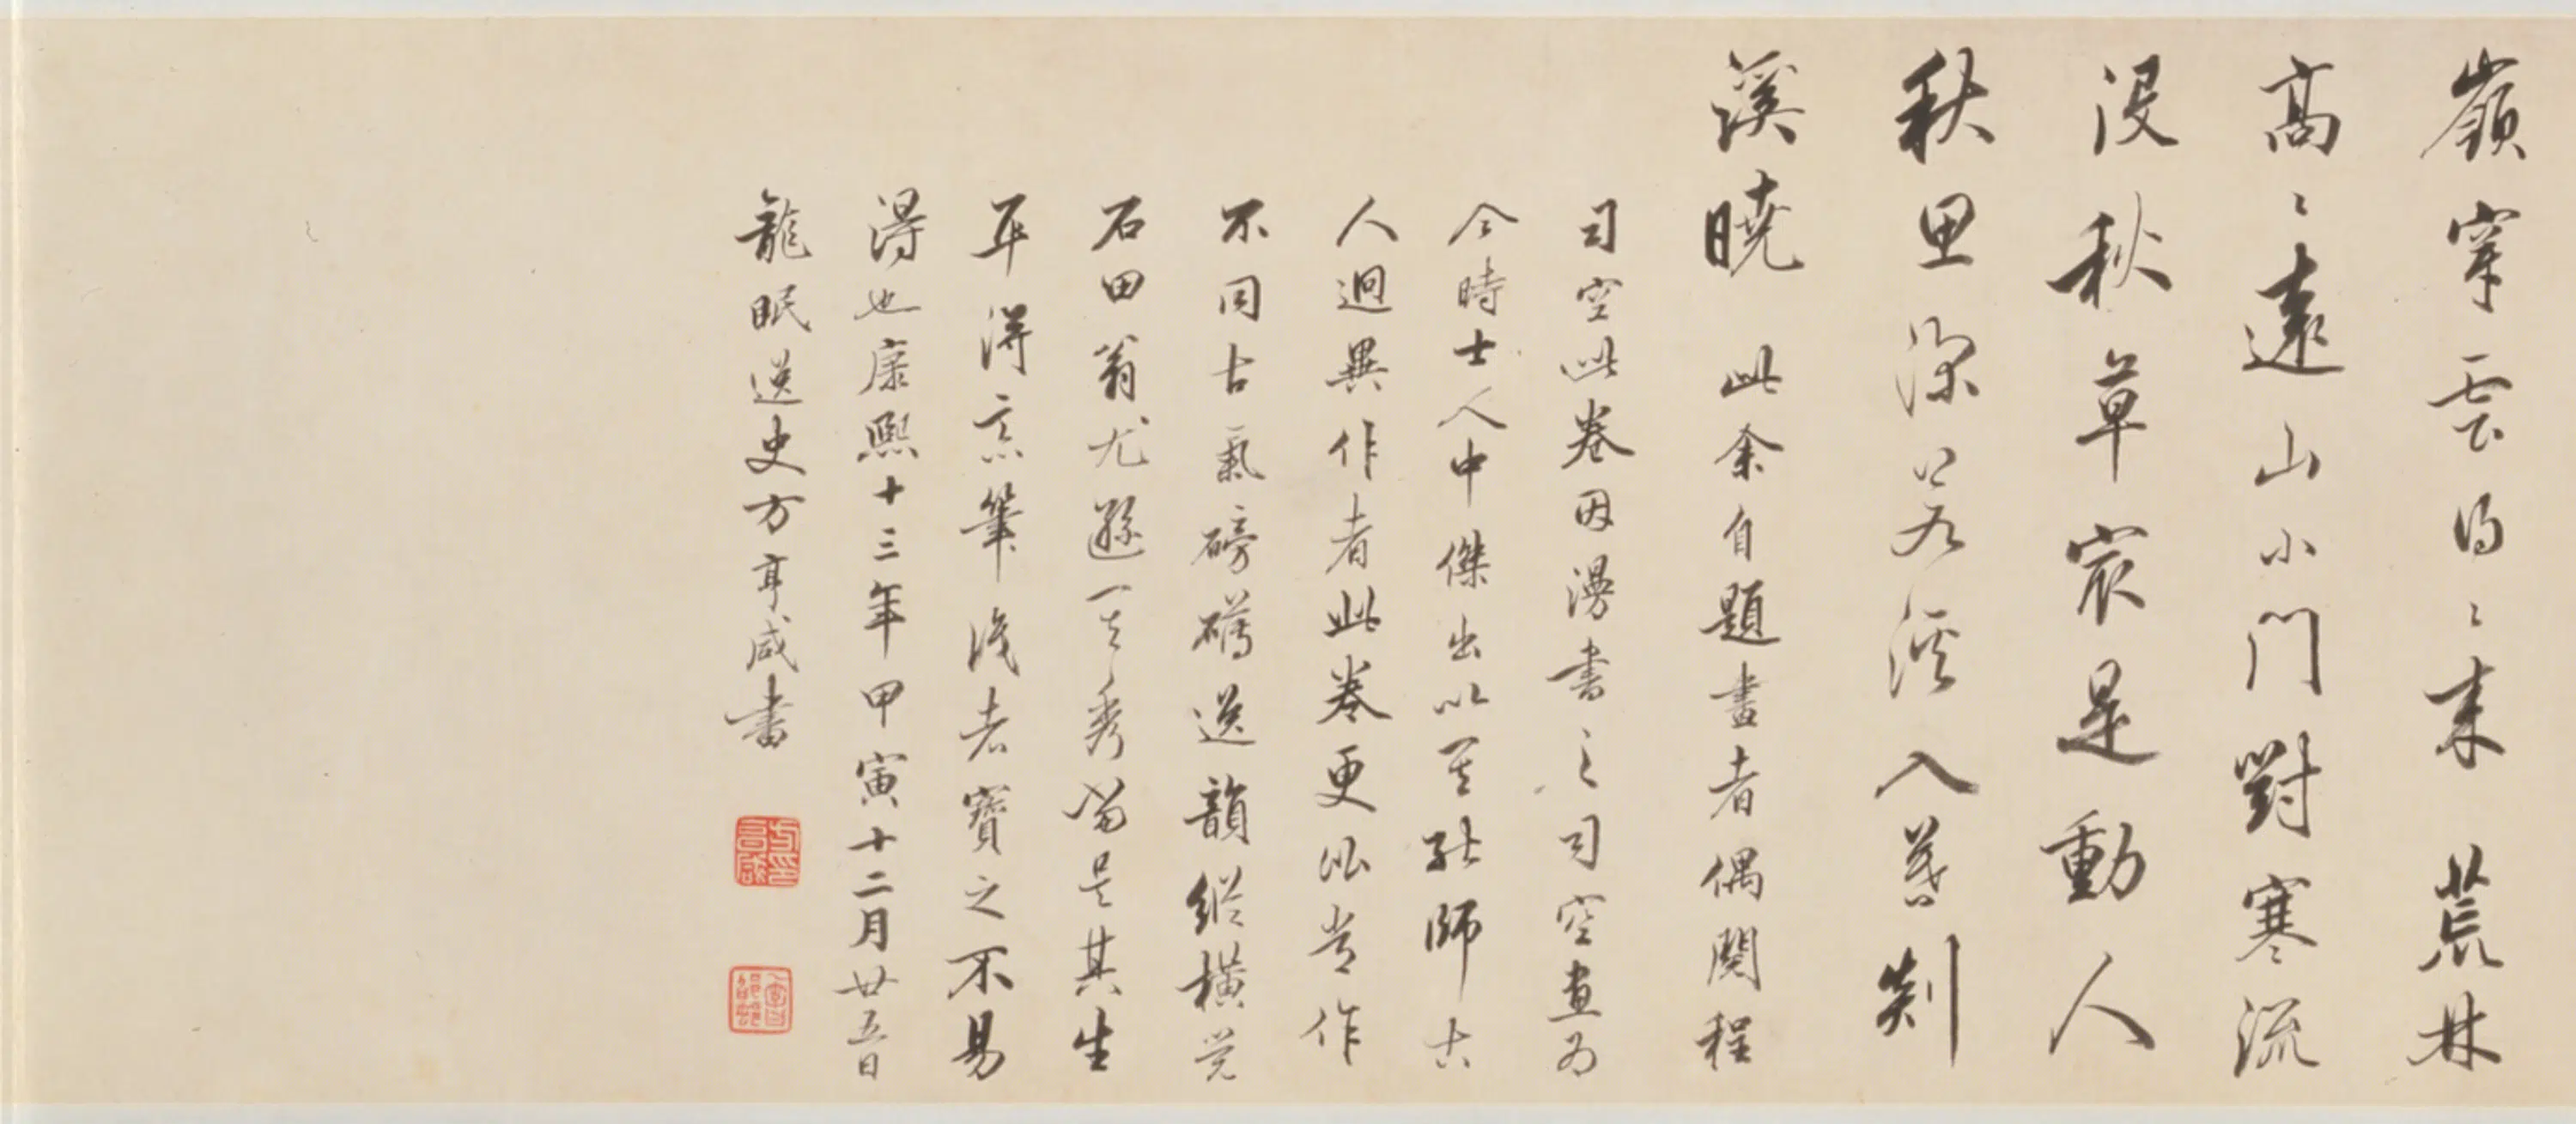 嶺穿雲得得来荒林
高高遠山小門對寒流
没秋草宸是動人
秋里深公若溪入暮剡
溪曉 此余自題畫者偶閱程
司空此卷因漫書之司空畫為
今時士人中傑出以其能師古
人迥異作者此卷更泓堂作
不同古氣磅礴逸韻縱橫覺
石田翁尤遜一其秀當是其生
平得意筆識者寶之不易
得也康熙十三年甲寅十二月廿五日
龍眠逸史方亨咸書